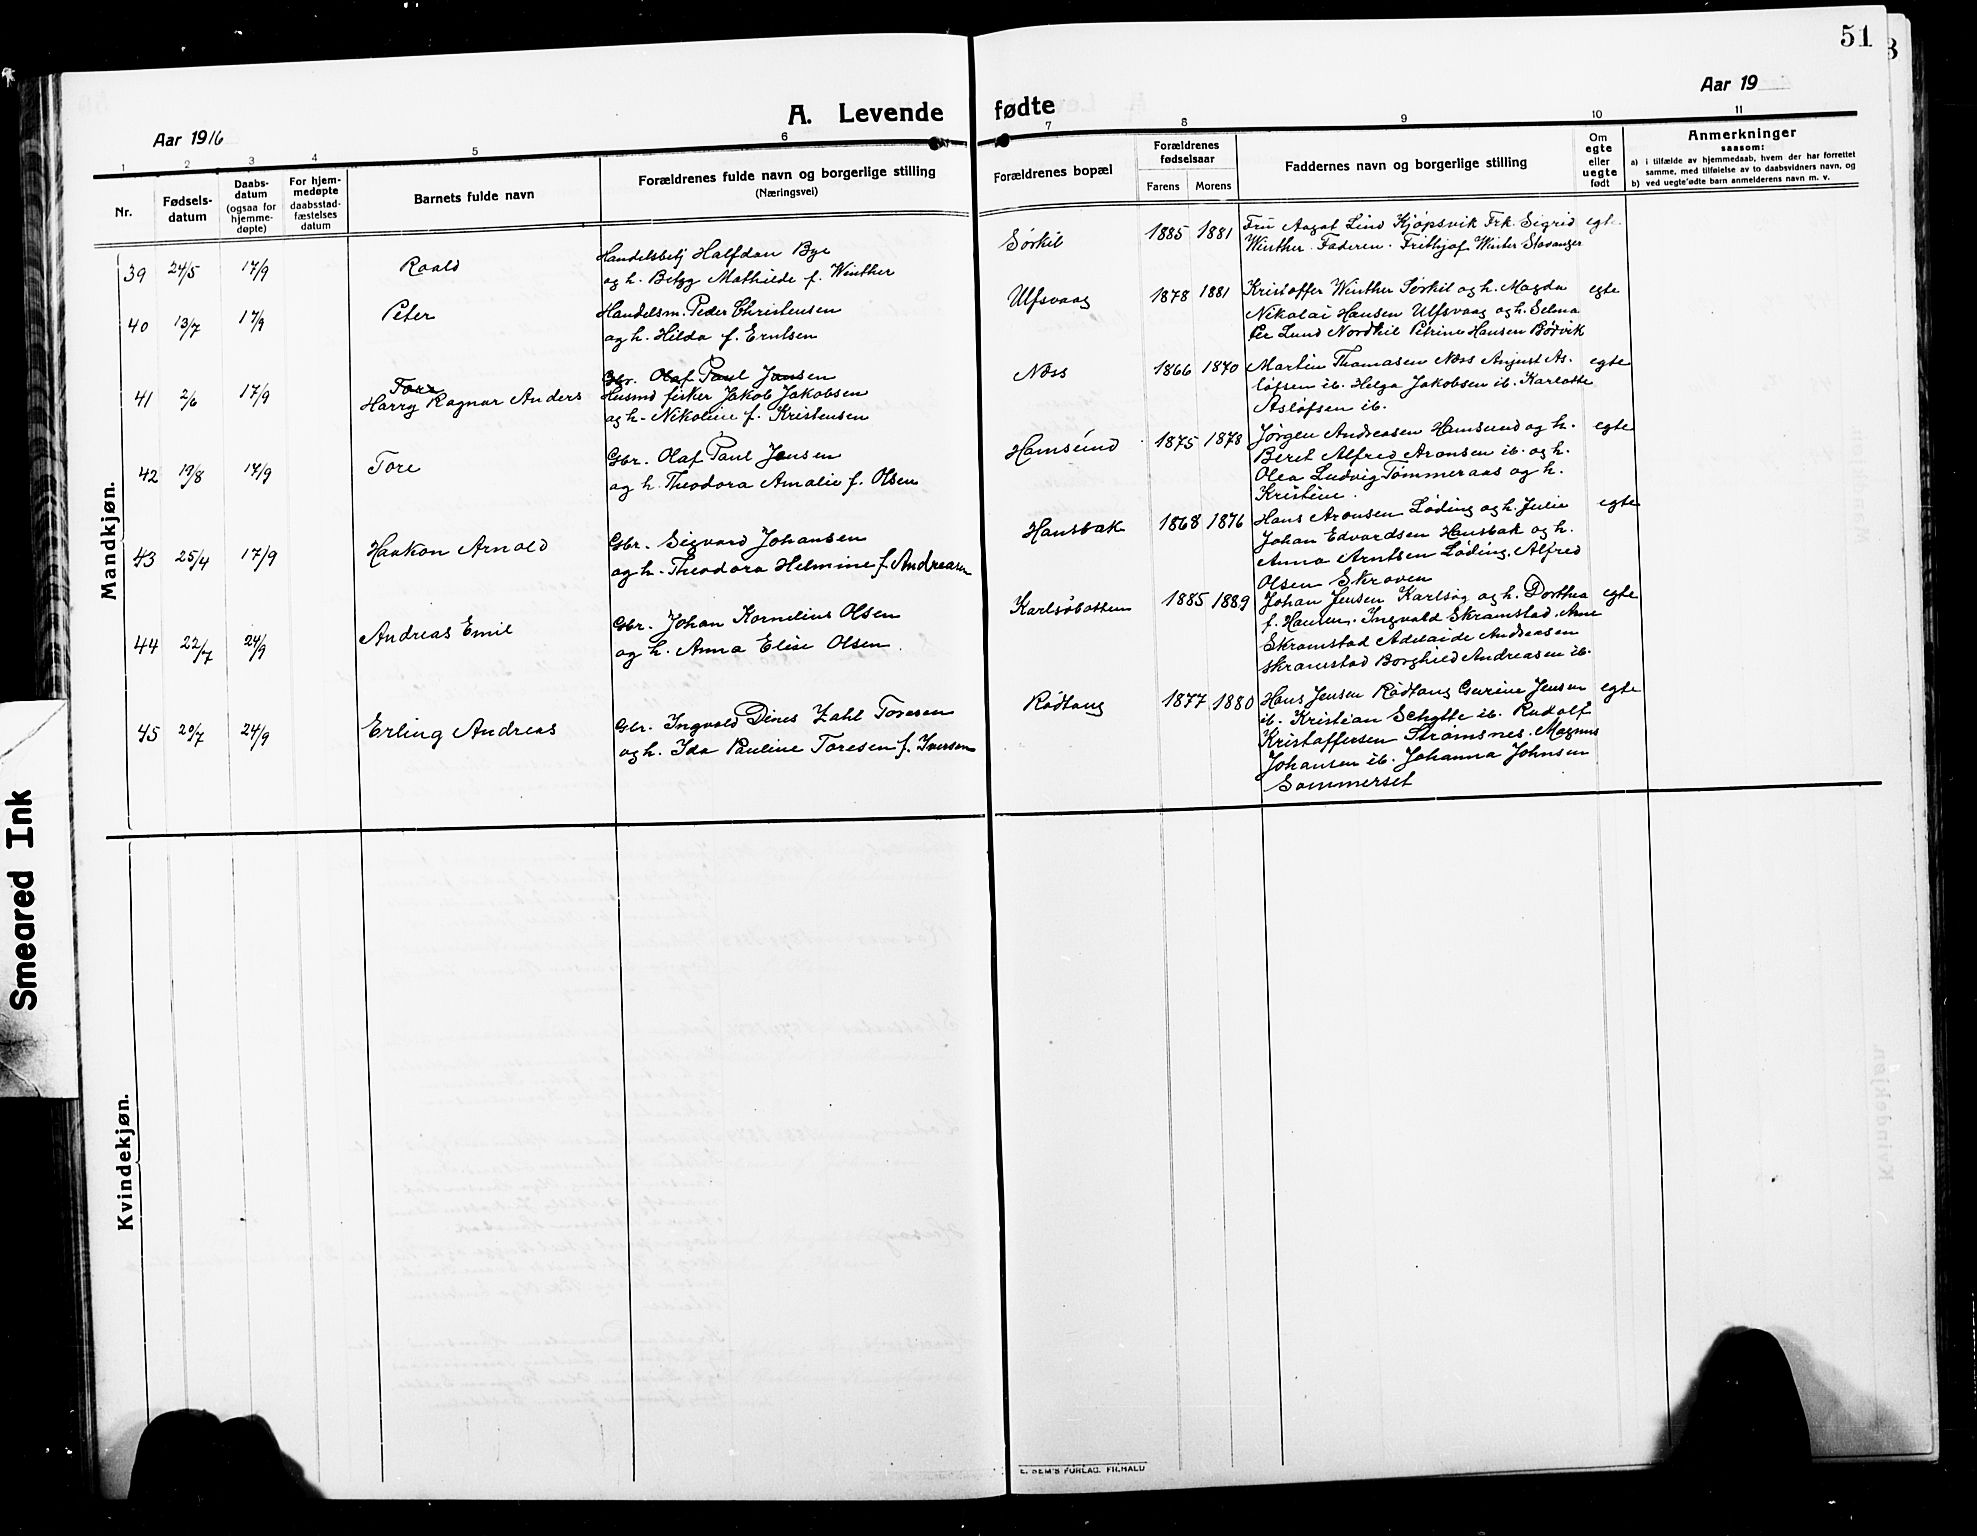 51
Aar 1916
A. Levende
fødte
Aar 19
1 2 3 4 5 6 7 8 9 10 11
Nr.
Fødsels-
datum
Daabs-
datum
(ogsaa for
hjemme-
døpte)
For hjem-
medøpte
daabsstad-
fæstelses
datum
Barnets fulde navn
Forældrenes fulde navn og borgerlige stilling
(Næringsvei)
Forældrenes bopæl
Forældrenes
fødselsaar
Farens Morens
Faddernes navn og borgerlige stilling
Om
egte
eller
uegte
født
Anmerkninger
saasom:
a) i tilfælde av hjemmedaab, hvem der har forrettet
samme, med tilføielse av to daabsvidners navn, og
b) ved uegte fødte barn anmelderens navn m. v.
Mandkjøn.
39 24/5 17/9 Roald
Handelsbetj Halfdan Bye
og h. Betzy Mathilde f. Winther
Sørkil 1885 1881
Fru Aagot Lind Kjøpsvik Frk. Sigrid
Winther. Faderen. Frithjof Winter Stavanger
egte
40 13/7 17/9 Peter
Handelsm. Peder Christensen
og h. Hilda f. Erntsen
Ulfsvaag 1878 1881
Kristoffer Winther Sørkil og h. Magda
Nikolai Hansen Ulfsvaag og h. Selma
Per Lund Nordkil Petrine Hansen Bødvik
egte
41 2/6 17/9 Tore
Harry Ragnar Anders
Gbr. Olaf Paul Jensen
Husmd fisker Jakob Jakobsen
og h. Nikoline f. Kristensen
Næss 1866 1870
Martin Thomasen Næss August As-
løfsen ib. Helga Jakobsen ib. Karlotte
Asløfsen ib.
egte
42 19/8 17/9 Tore
Gbr. Olaf Paul Jensen
og h. Theodora Amalie f. Olsen
Hamsund 1875 1878
Jørgen Andreasen Hamsund og h.
Beret Alfred Aronsen ib. og h.
Olea Ludvig Tømmeraas og h.
Kristine.
egte
43 25/4 17/9 Haakon Arnold
Gbr. Sigvard Johansen
og h. Theodora Helmine f. Andreasen
Hansbak 1868 1876
Hans Aronsen Løding og h. Julie
Johan Edvardsen Hansbak og h.
Anna Arntsen Løding. Alfred
Olsen Skroven
egte
44 22/7 24/9 Andreas Emil
Gbr. Johan Kornelius Olsen
og h. Anna Elise Olsen.
Karlsøbotten 1885 1889
Johan Jensen Karlsøg og h. Dorthea
f. Hansen. Ingvald Skramstad. Anne
Skramstad Adelaide Andreasen
Skramstad Borghild Andreasen ib.
egte
45 20/7 24/9 Erling Andreas
Gbr. Ingvald Dines Zahl Toresen
og h. Ida Pauline Toresen f. Iversen
Rødtang 1877 1880
Hans Jensen Rødtang Gurine Jensen
ib. Kristian Schytte ib. Rudolf
Kristoffersen Strømsnes. Magnus
Johansen ib. Johanna Johnsen
Sommerset
egte
Kvindekjøn.
Smeared Ink
E. SEM'S FORLAG, FR.HALD